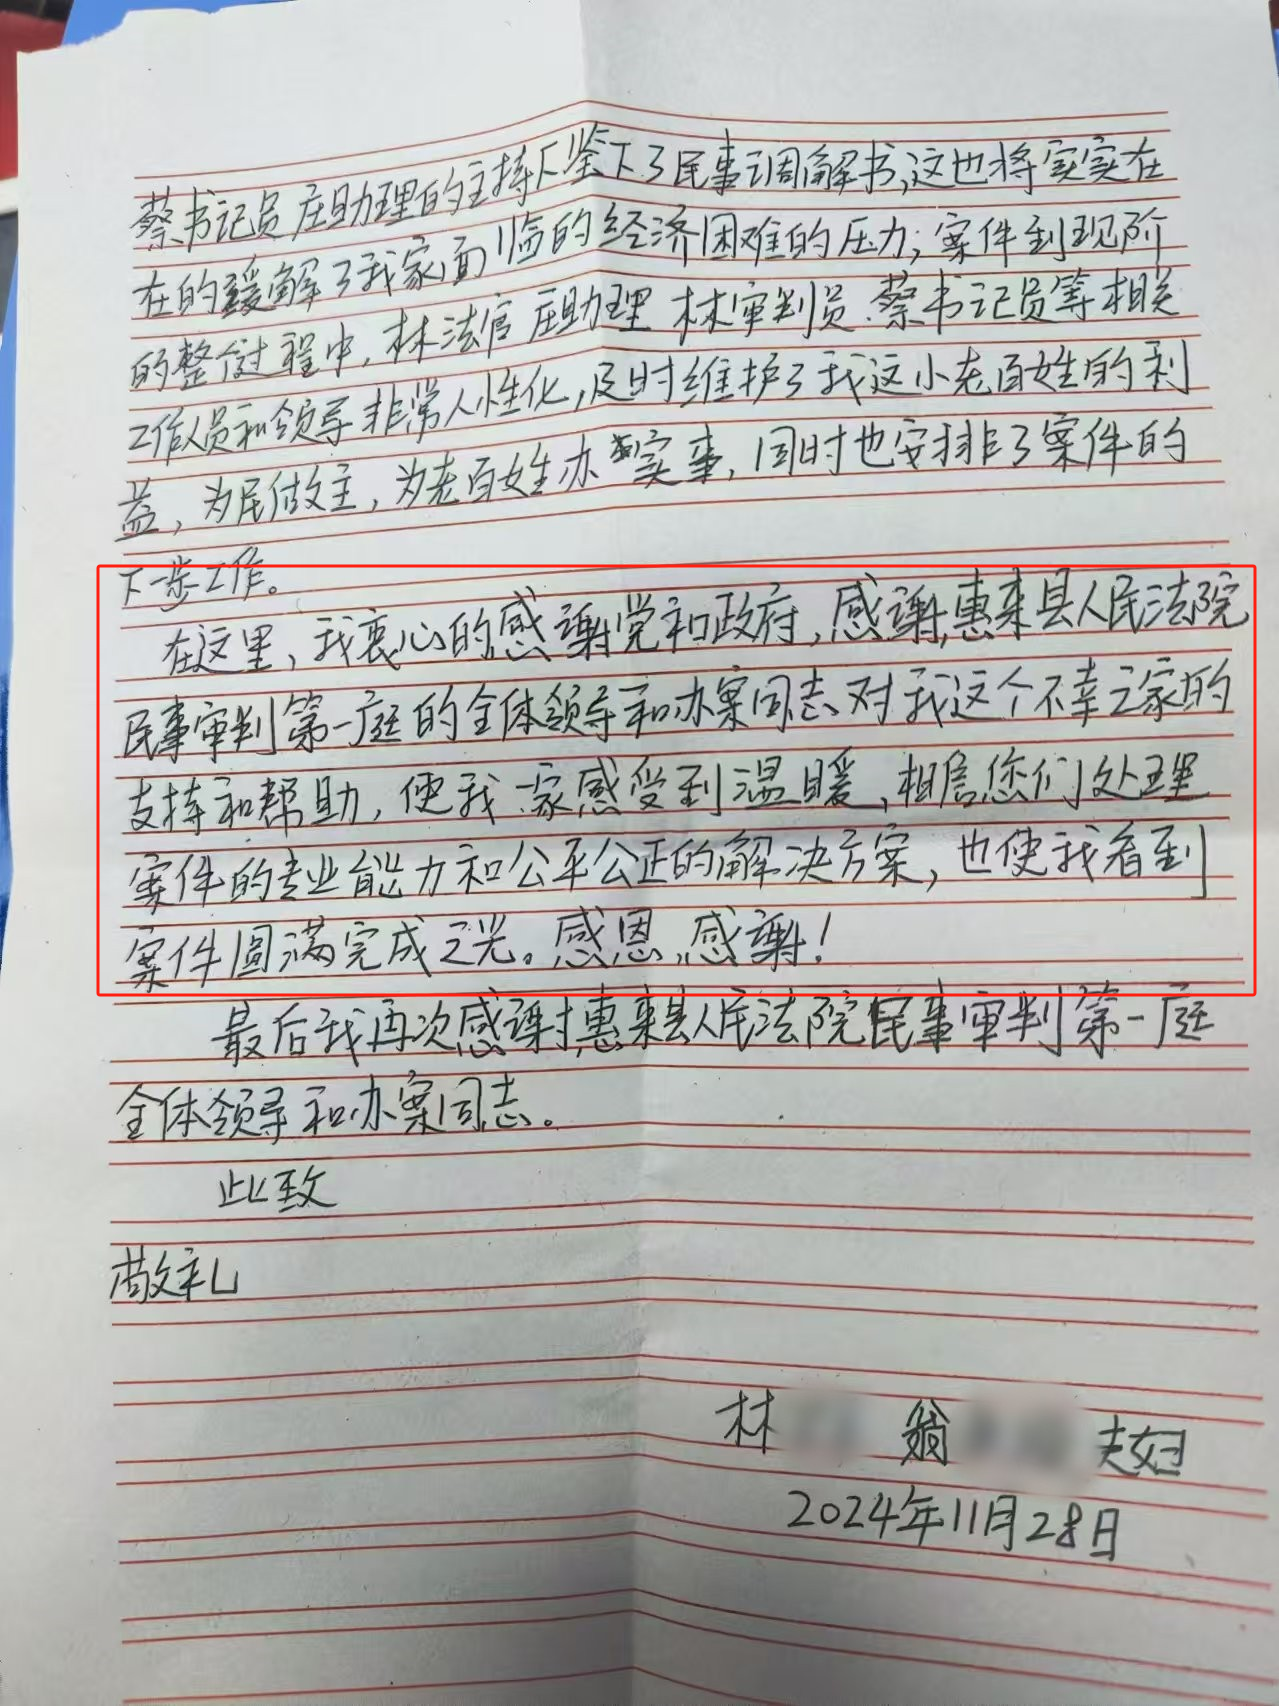 蔡书记员庄助理的主持下签下了民事调解书,这也将实实在
在的缓解了我家面临的经济困难的压力;案件到现阶
的整个过程中,林法官 庄助理 林审判员.蔡书记员等相关
工作人员和领导非常人性化,及时维护了我这小老百姓的利
益,为民做主,为老百姓办实事,同时也安排了案件的
下一步工作。
在这里,我衷心的感謝党和政府,感謝,惠来县人民法院
民事审判第一庭的全体领导和办案同志对我这个不幸之家的
支持和帮助,使我家感受到温暖,相信您们处理
案件的专业能力和公平公正的解决方案,也使我看到
案件圆满完成之光。感恩,感謝!
最后我再次感謝惠来县人民法院民事审判第一庭
全体领导和办案同志。
此致
敬礼
林 翁 夫妇
2024年11月28日